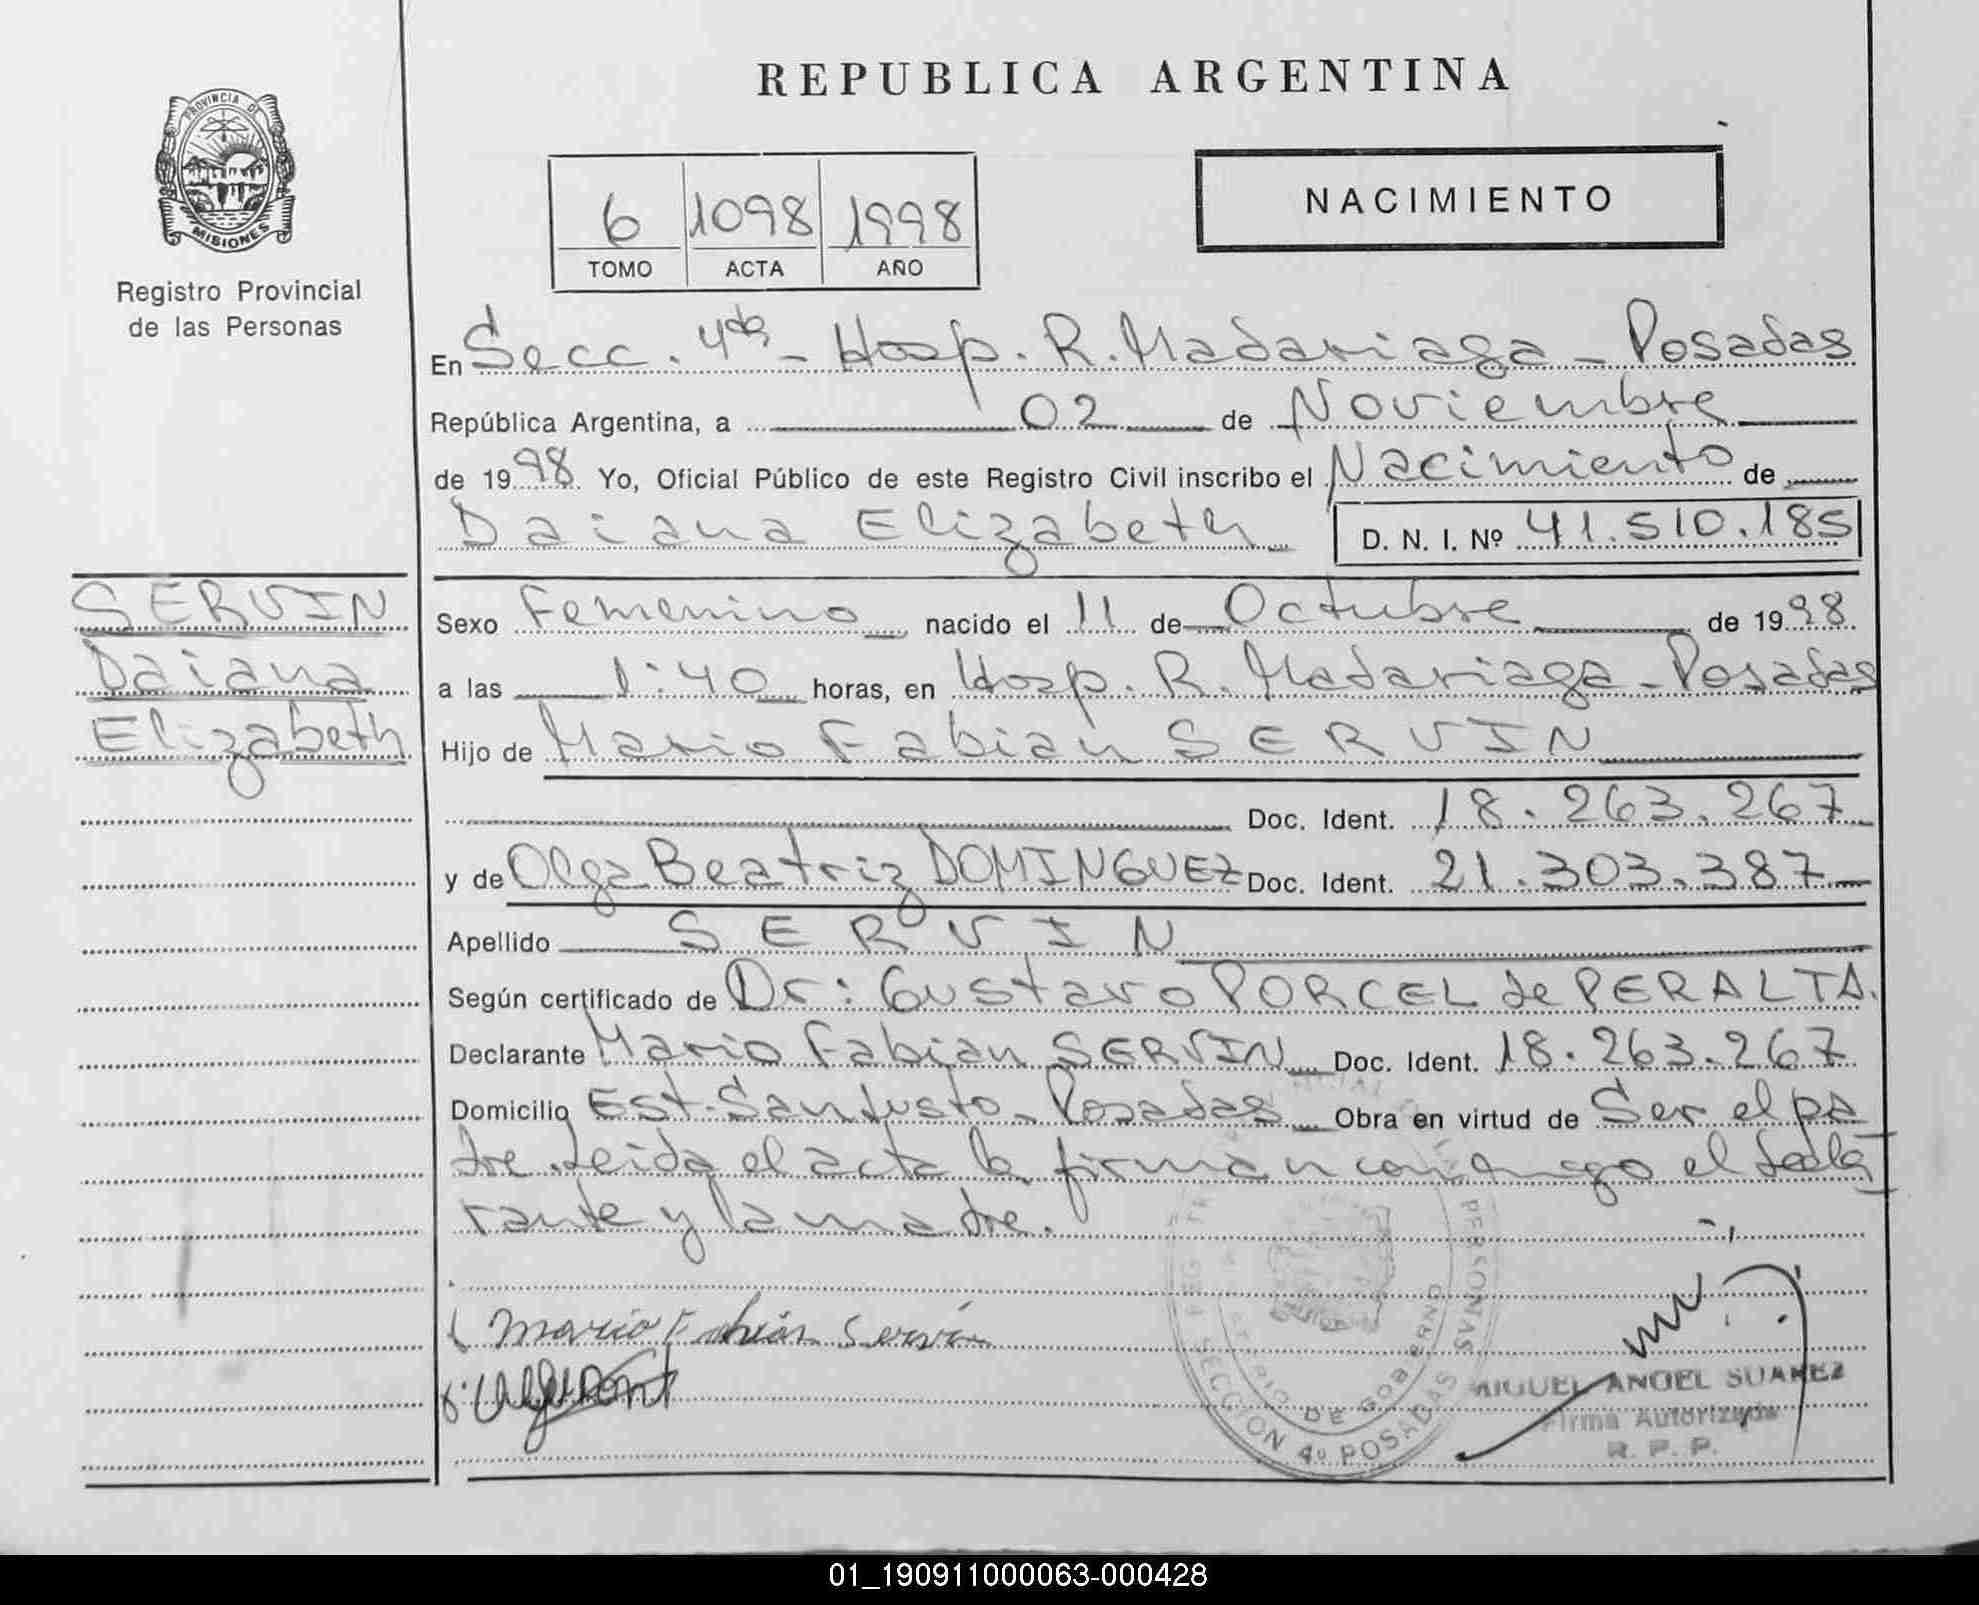 REPUBLICA ARGENTINA
PROVINCIA DE
MISIONES
Registro Provincial
de las Personas
6 1098 1998
TOMO ACTA AÑO
NACIMIENTO
En Secc. 4ta - Hosp. R. Madariaga - Posadas
República Argentina, a 02 de Noviembre
de 1998 Yo, Oficial Público de este Registro Civil inscribo el Nacimiento de
Daiana Elizabeth D. N. I. Nº 41.510.185
SERVIN
Daiana
Elizabeth
Sexo Femenino nacido el 11 de Octubre de 1998
a las 1:40 horas, en Hosp. R. Madariaga - Posadas
Hijo de Mario Fabian SERVIN
Doc. Ident. 18.263.267
y de Olga Beatriz DOMINGUEZ Doc. Ident. 21.303.387
Apellido SERVIN
Según certificado de Dr: Gustavo PORCEL de PERALTA.
Declarante Mario Fabian SERVIN Doc. Ident. 18.263.267
Domicilio Est. San Justo - Posadas Obra en virtud de Ser el pa
dre. Leida el acta la firman conmigo el decla
rante y la madre.
Mario Fabián Servín
PERSONAS
DE GOBIERNO
SECCION 4º POSADAS
MIGUEL ANGEL SUAREZ
Firma Autorizada
R. P. P.
01_190911000063-000428